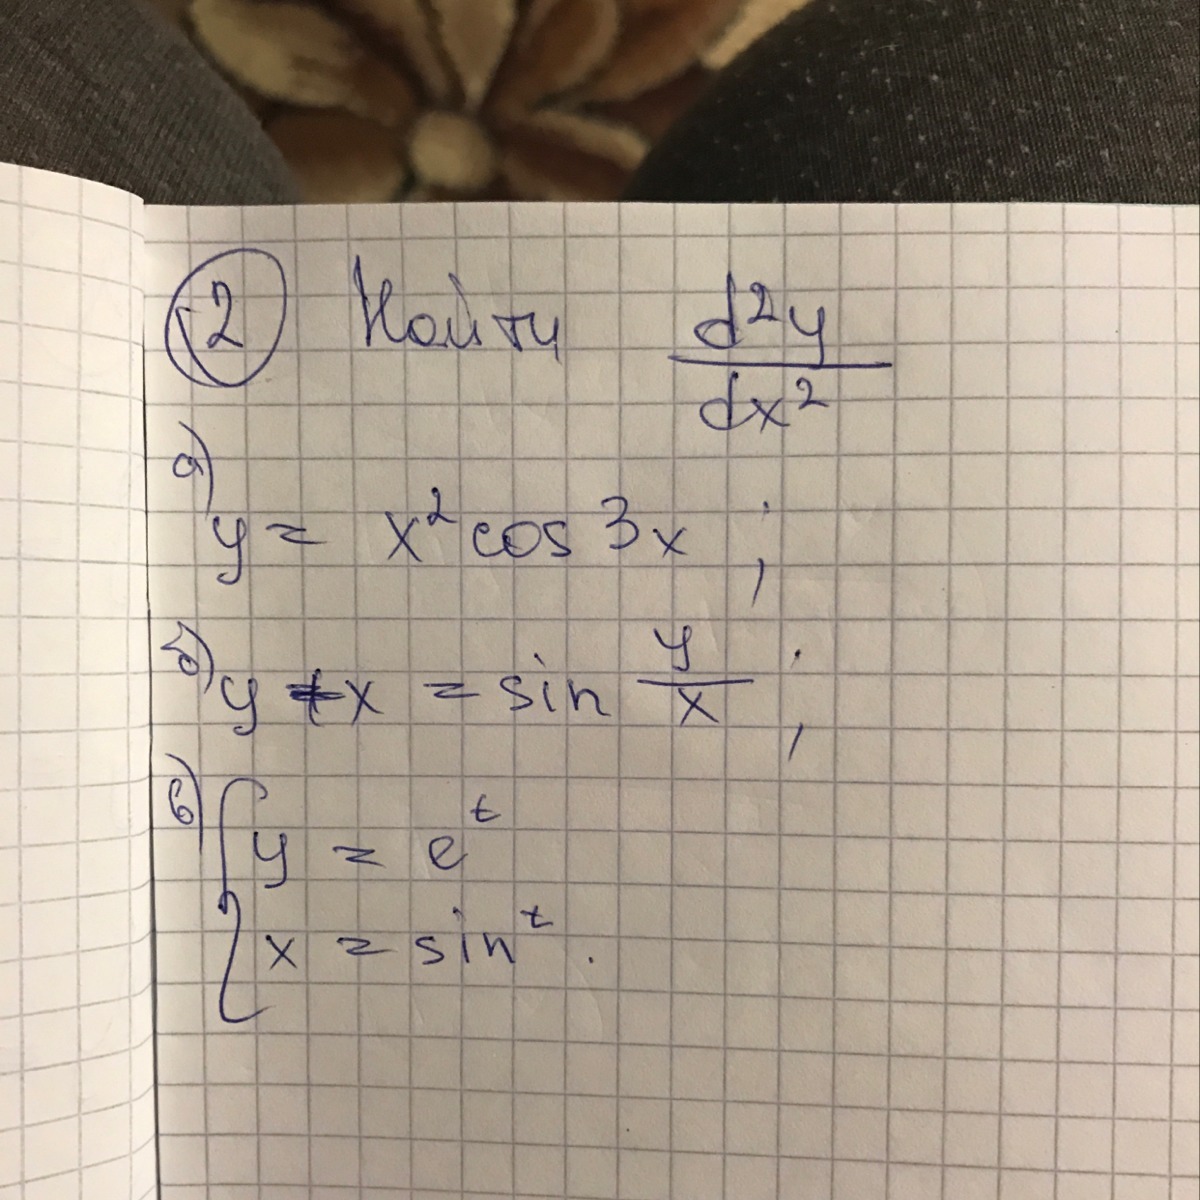 2 Найти d²y
dx²
а)
y = x² cos 3x ;
б) y + x = sin y/x ;
в) { y = e^t
x = sin^t .